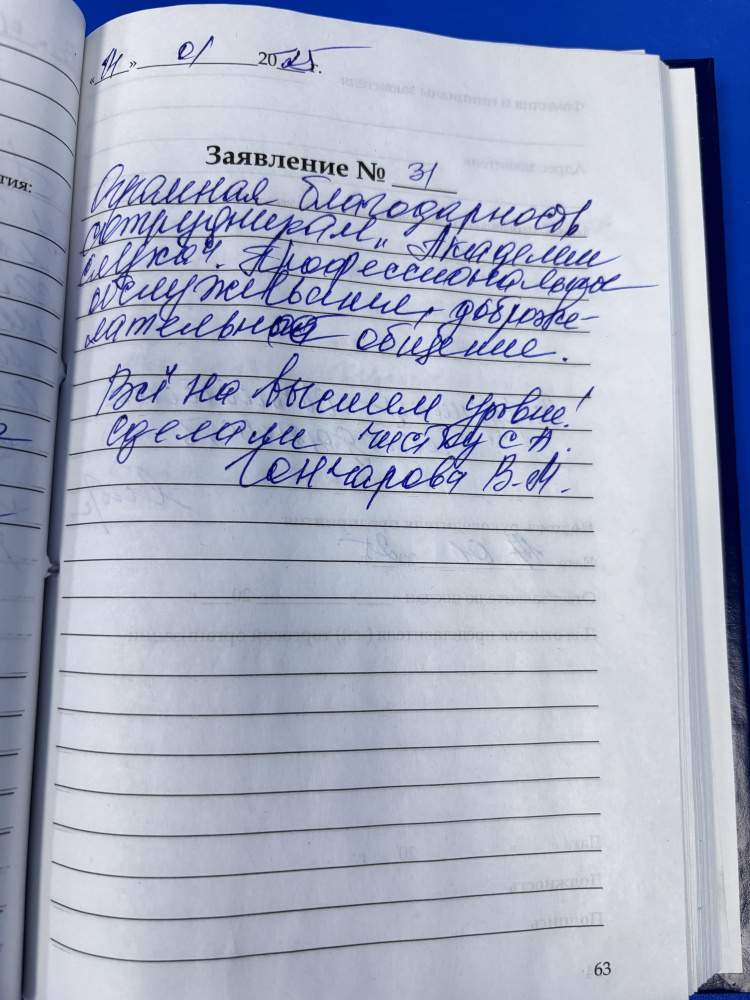 « 14 » 01 2025 г.
Заявление № 31
Огромная благодарность
сотрудникам „Академии
слуха". Профессиональное
обслуживание, доброже-
лательное общение.
Всё на высшем уровне!
Сделали чистку с А.
Гончарова В.М.
тия:
63